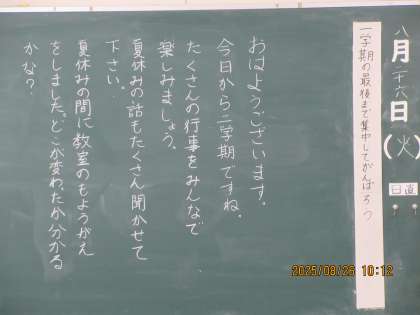 八月二十六日(火)
日直
一学期の最後まで集中してがんばろう
おはようございます。
今日から二学期ですね。
たくさんの行事をみんなで
楽しみましょう。
夏休みの話もたくさん聞かせて
下さい。
夏休みの間に教室のもようがえ
をしました。どこが変わったか分かる
かな?
2025/08/26 10:12